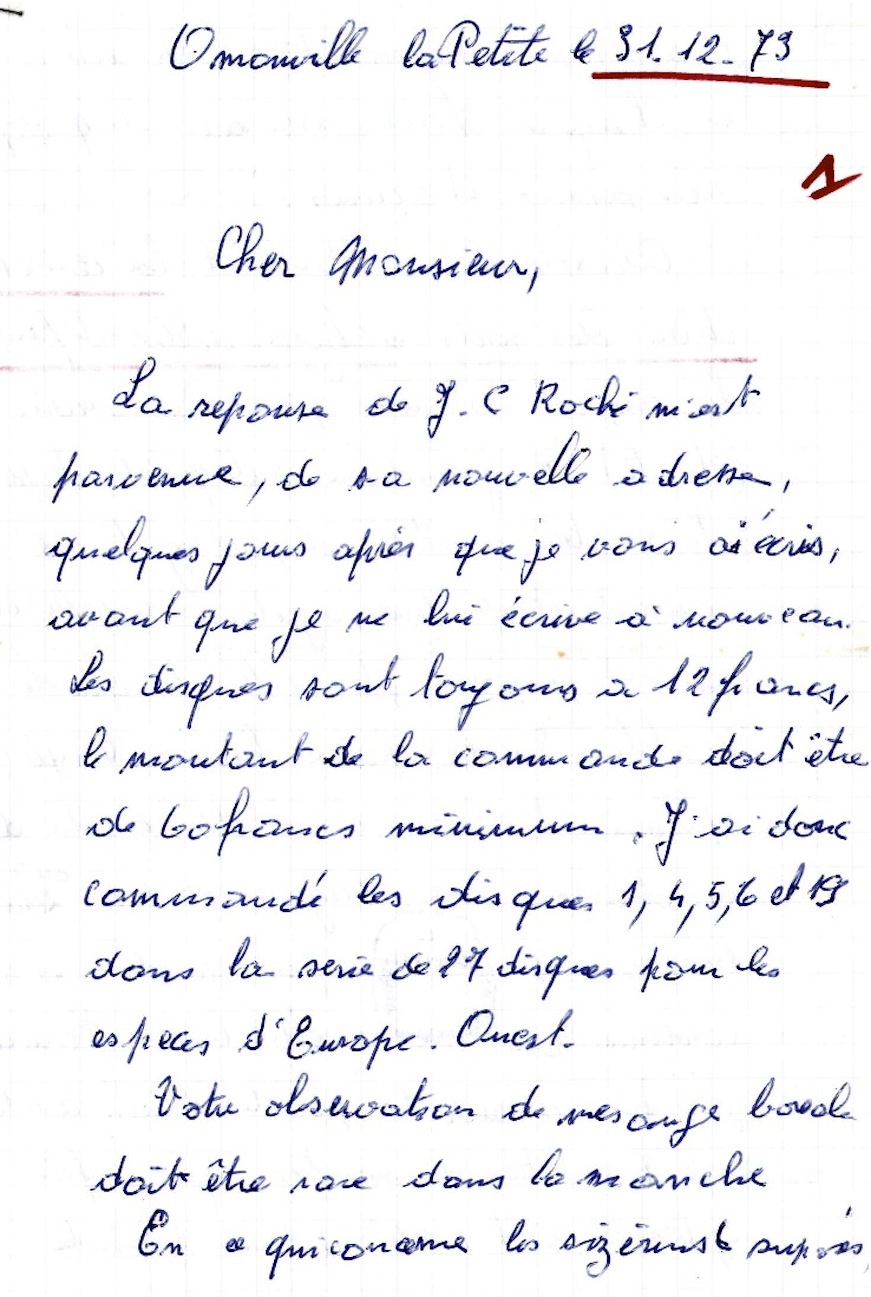 Omonville la Petite le 31.12.73
1
Cher Monsieur,
La reponse de J.C Roché m'est
parvenue, de sa nouvelle adresse,
quelques jours après que je vous ai écris,
avant que je ne lui écrive à nouveau.
Les disques sont toujours a 12 francs,
le montant de la commande doit être
de 60 francs minimum. J'ai donc
commandé les disques 1, 4, 5, 6 et 19
dans la serie de 27 disques pour les
especes d'Europe. Ouest.
Votre observation de mesange boreale
doit être rare dans la manche
En ce qui concerne les sizerins